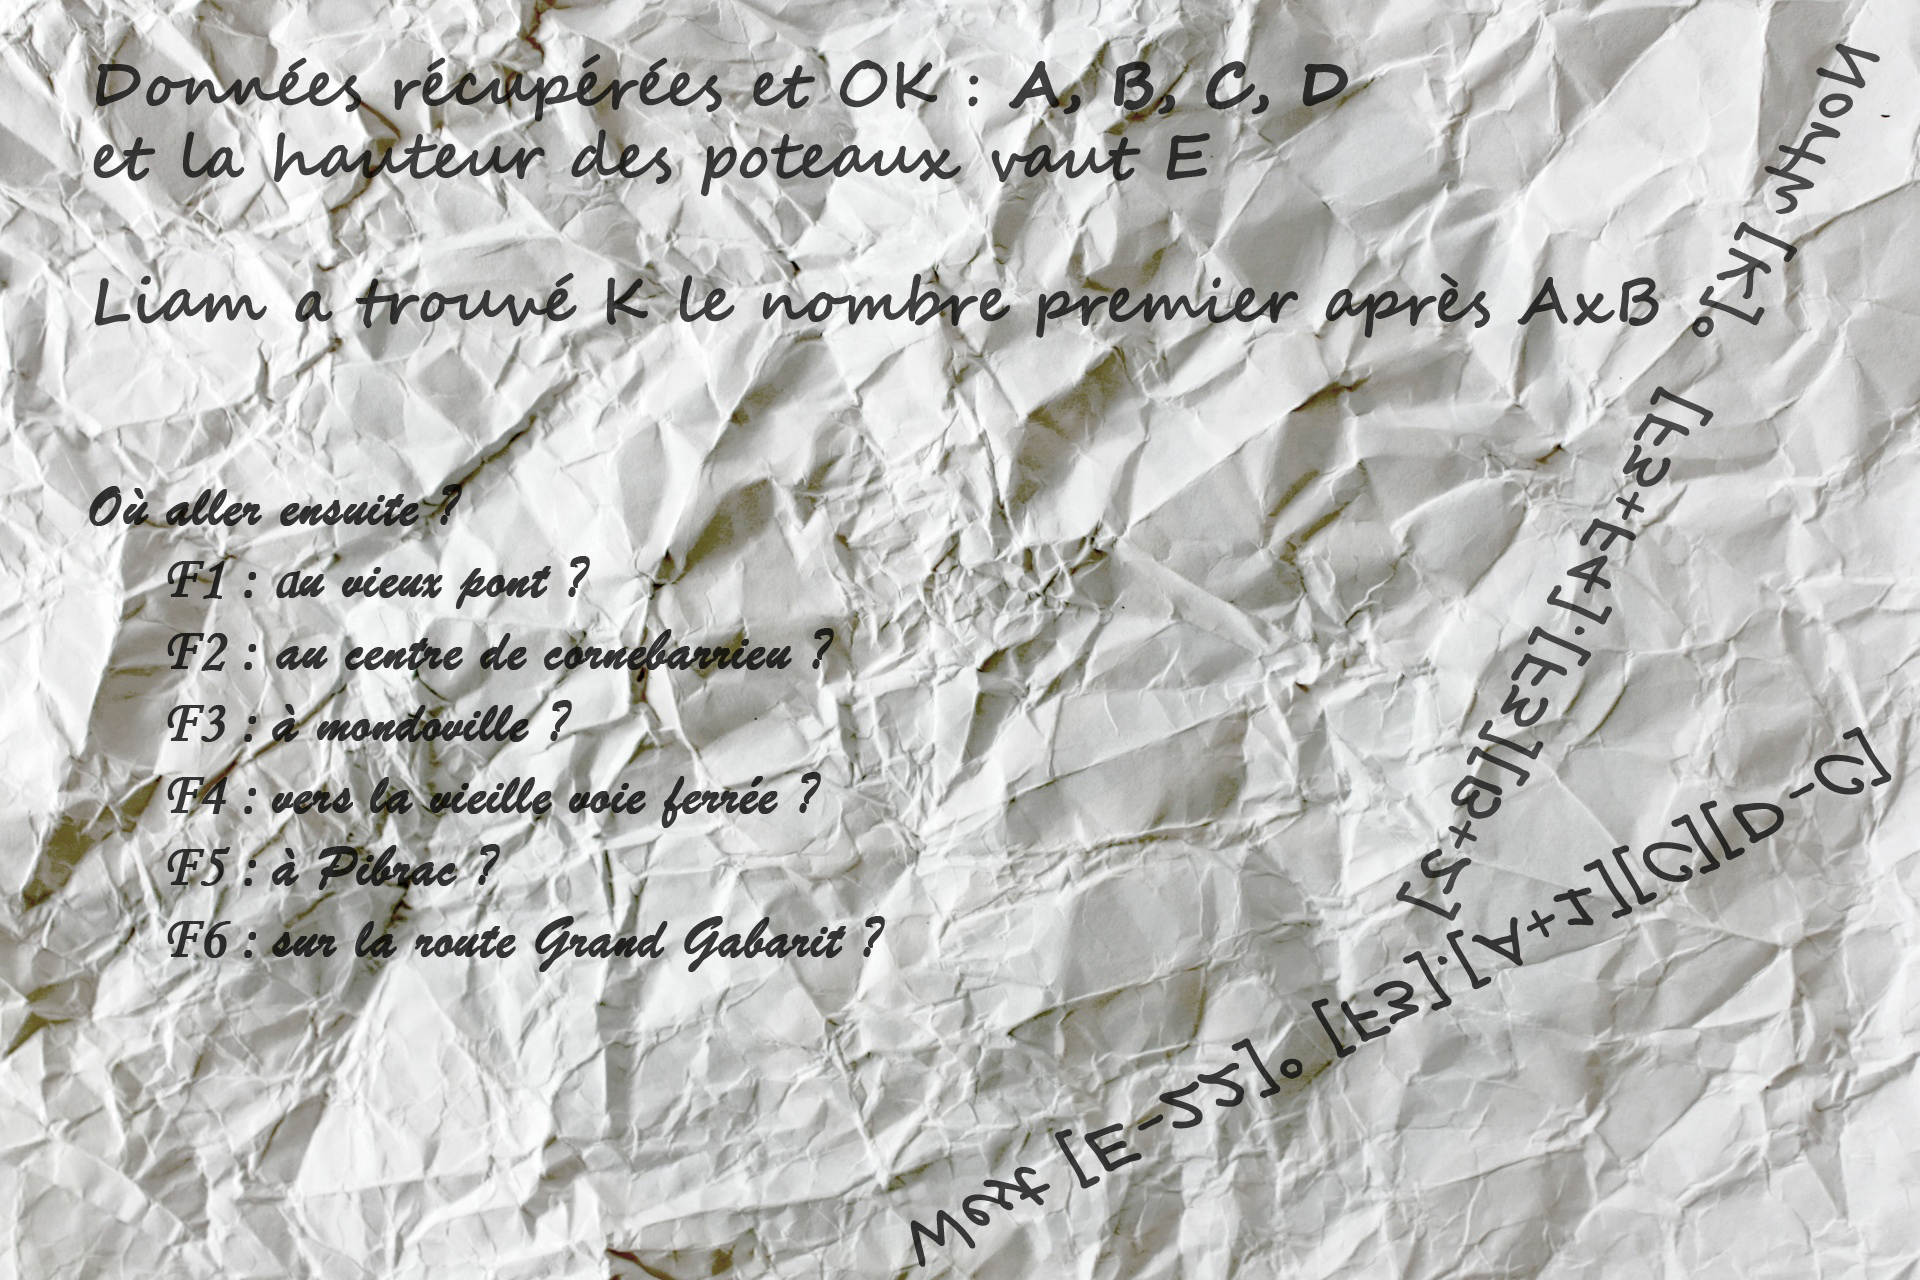 Données récupérées et OK : A, B, C, D
et la hauteur des poteaux vaut E
Liam a trouvé K le nombre premier après AxB
Où aller ensuite ?
F1 : au vieux pont ?
F2 : au centre de cornebarrieu ?
F3 : à mondoville ?
F4 : vers la vieille voie ferrée ?
F5 : à Pibrac ?
F6 : sur la route Grand Gabarit ?
North [K]° [F3+F4].[F3][B+2]
West [E-22]° [F3].[A+1][C][D-C]